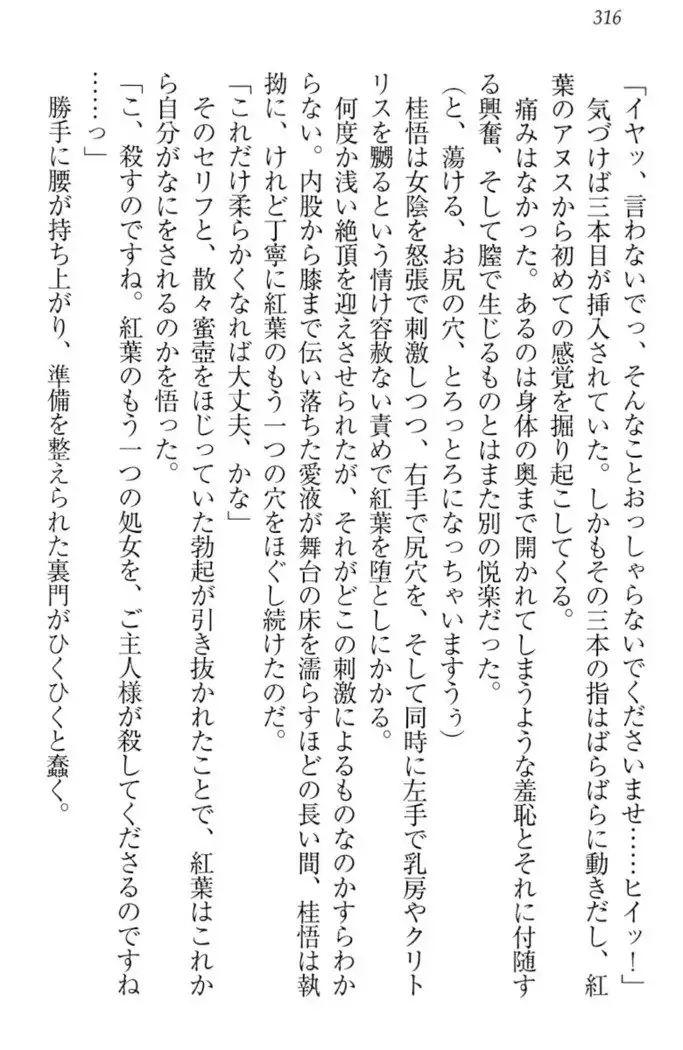 316
「イヤッ、言わないでっ、そんなことおっしゃらないでくださいませ……ヒイッ！」
気づけば三本目が挿入されていた。しかもその三本の指はばらばらに動きだし、紅
葉のアヌスから初めての感覚を掘り起こしてくる。
痛みはなかった。あるのは身体の奥まで開かれてしまうような羞恥とそれに付随す
る興奮、そして膣で生じるものとはまた別の悦楽だった。
（と、蕩ける、お尻の穴、とろっとろになっちゃいますうぅ）
桂悟は女陰を怒張で刺激しつつ、右手で尻穴を、そして同時に左手で乳房やクリト
リスを嬲るという情け容赦ない責めで紅葉を堕としにかかる。
何度か浅い絶頂を迎えさせられたが、それがどこの刺激によるものなのかすらわか
らない。内股から膝まで伝い落ちた愛液が舞台の床を濡らすほどの長い間、桂悟は執
拗に、けれど丁寧に紅葉のもう一つの穴をほぐし続けたのだ。
「これだけ柔らかくなれば大丈夫、かな」
そのセリフと、散々蜜壺をほじっていた勃起が引き抜かれたことで、紅葉はこれか
ら自分がなにをされるのかを悟った。
「こ、殺すのですね。紅葉のもう一つの処女を、ご主人様が殺してくださるのですね
……っ」
勝手に腰が持ち上がり、準備を整えられた裏門がひくひくと蠢く。